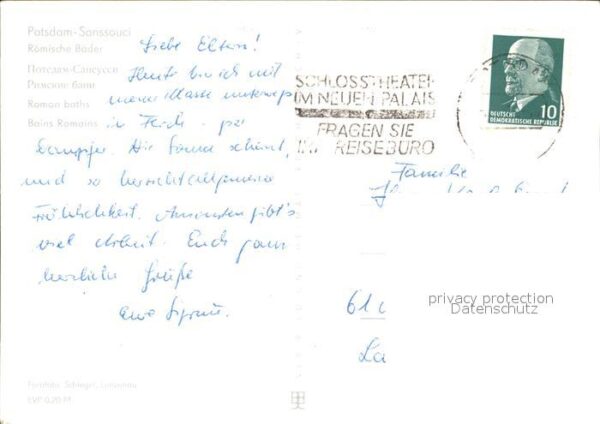 Potsdam-Sanssouci
Römische Bäder
Потсдам-Сансуси
Римские бани
Roman baths
Bains Romains
Liebe Eltern!
Heute bin ich mit
meiner Klasse unterwegs
in Ferch - per
Dampfer. Die Sonne scheint,
und so herrscht allgemeine
Fröhlichkeit. Ansonsten gibt's
viel Arbeit. Euch ganz
herzliche Grüße
Eure
SCHLOSSTHEATER
IM NEUEN PALAIS
FRAGEN SIE
IM REISEBÜRO
DEUTSCHE
DEMOKRATISCHE REPUBLIK
10
Familie
61
La
privacy protection
Datenschutz
EVP 0,20 M